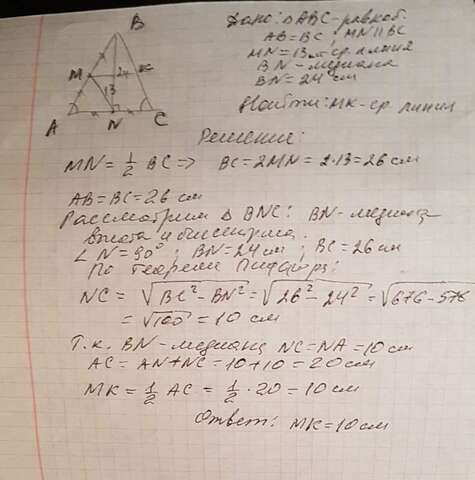 B
M
24
K
13
A
N
C
Дано: △ABC - равноб.
AB=BC; MN||BC
MN=13см ср. линия
BN - медиана
BN=24 см
Найти: MK-ср. линия
Решение:
MN = 1/2 BC => BC = 2MN = 2·13 = 26 см
AB=BC=26 см
Рассмотрим △ BNC: BN-медиана
высота и биссектриса.
∠ N = 90°; BN=24 см; BC=26 см
По теореме Пифагора:
NC = √BC² - BN² = √26² - 24² = √676-576
= √100 = 10 см
Т.к. BN-медиана, NC=NA=10 см
AC = AN+NC = 10+10 = 20 см
MK = 1/2 AC = 1/2 · 20 = 10 см
Ответ: MK=10 см